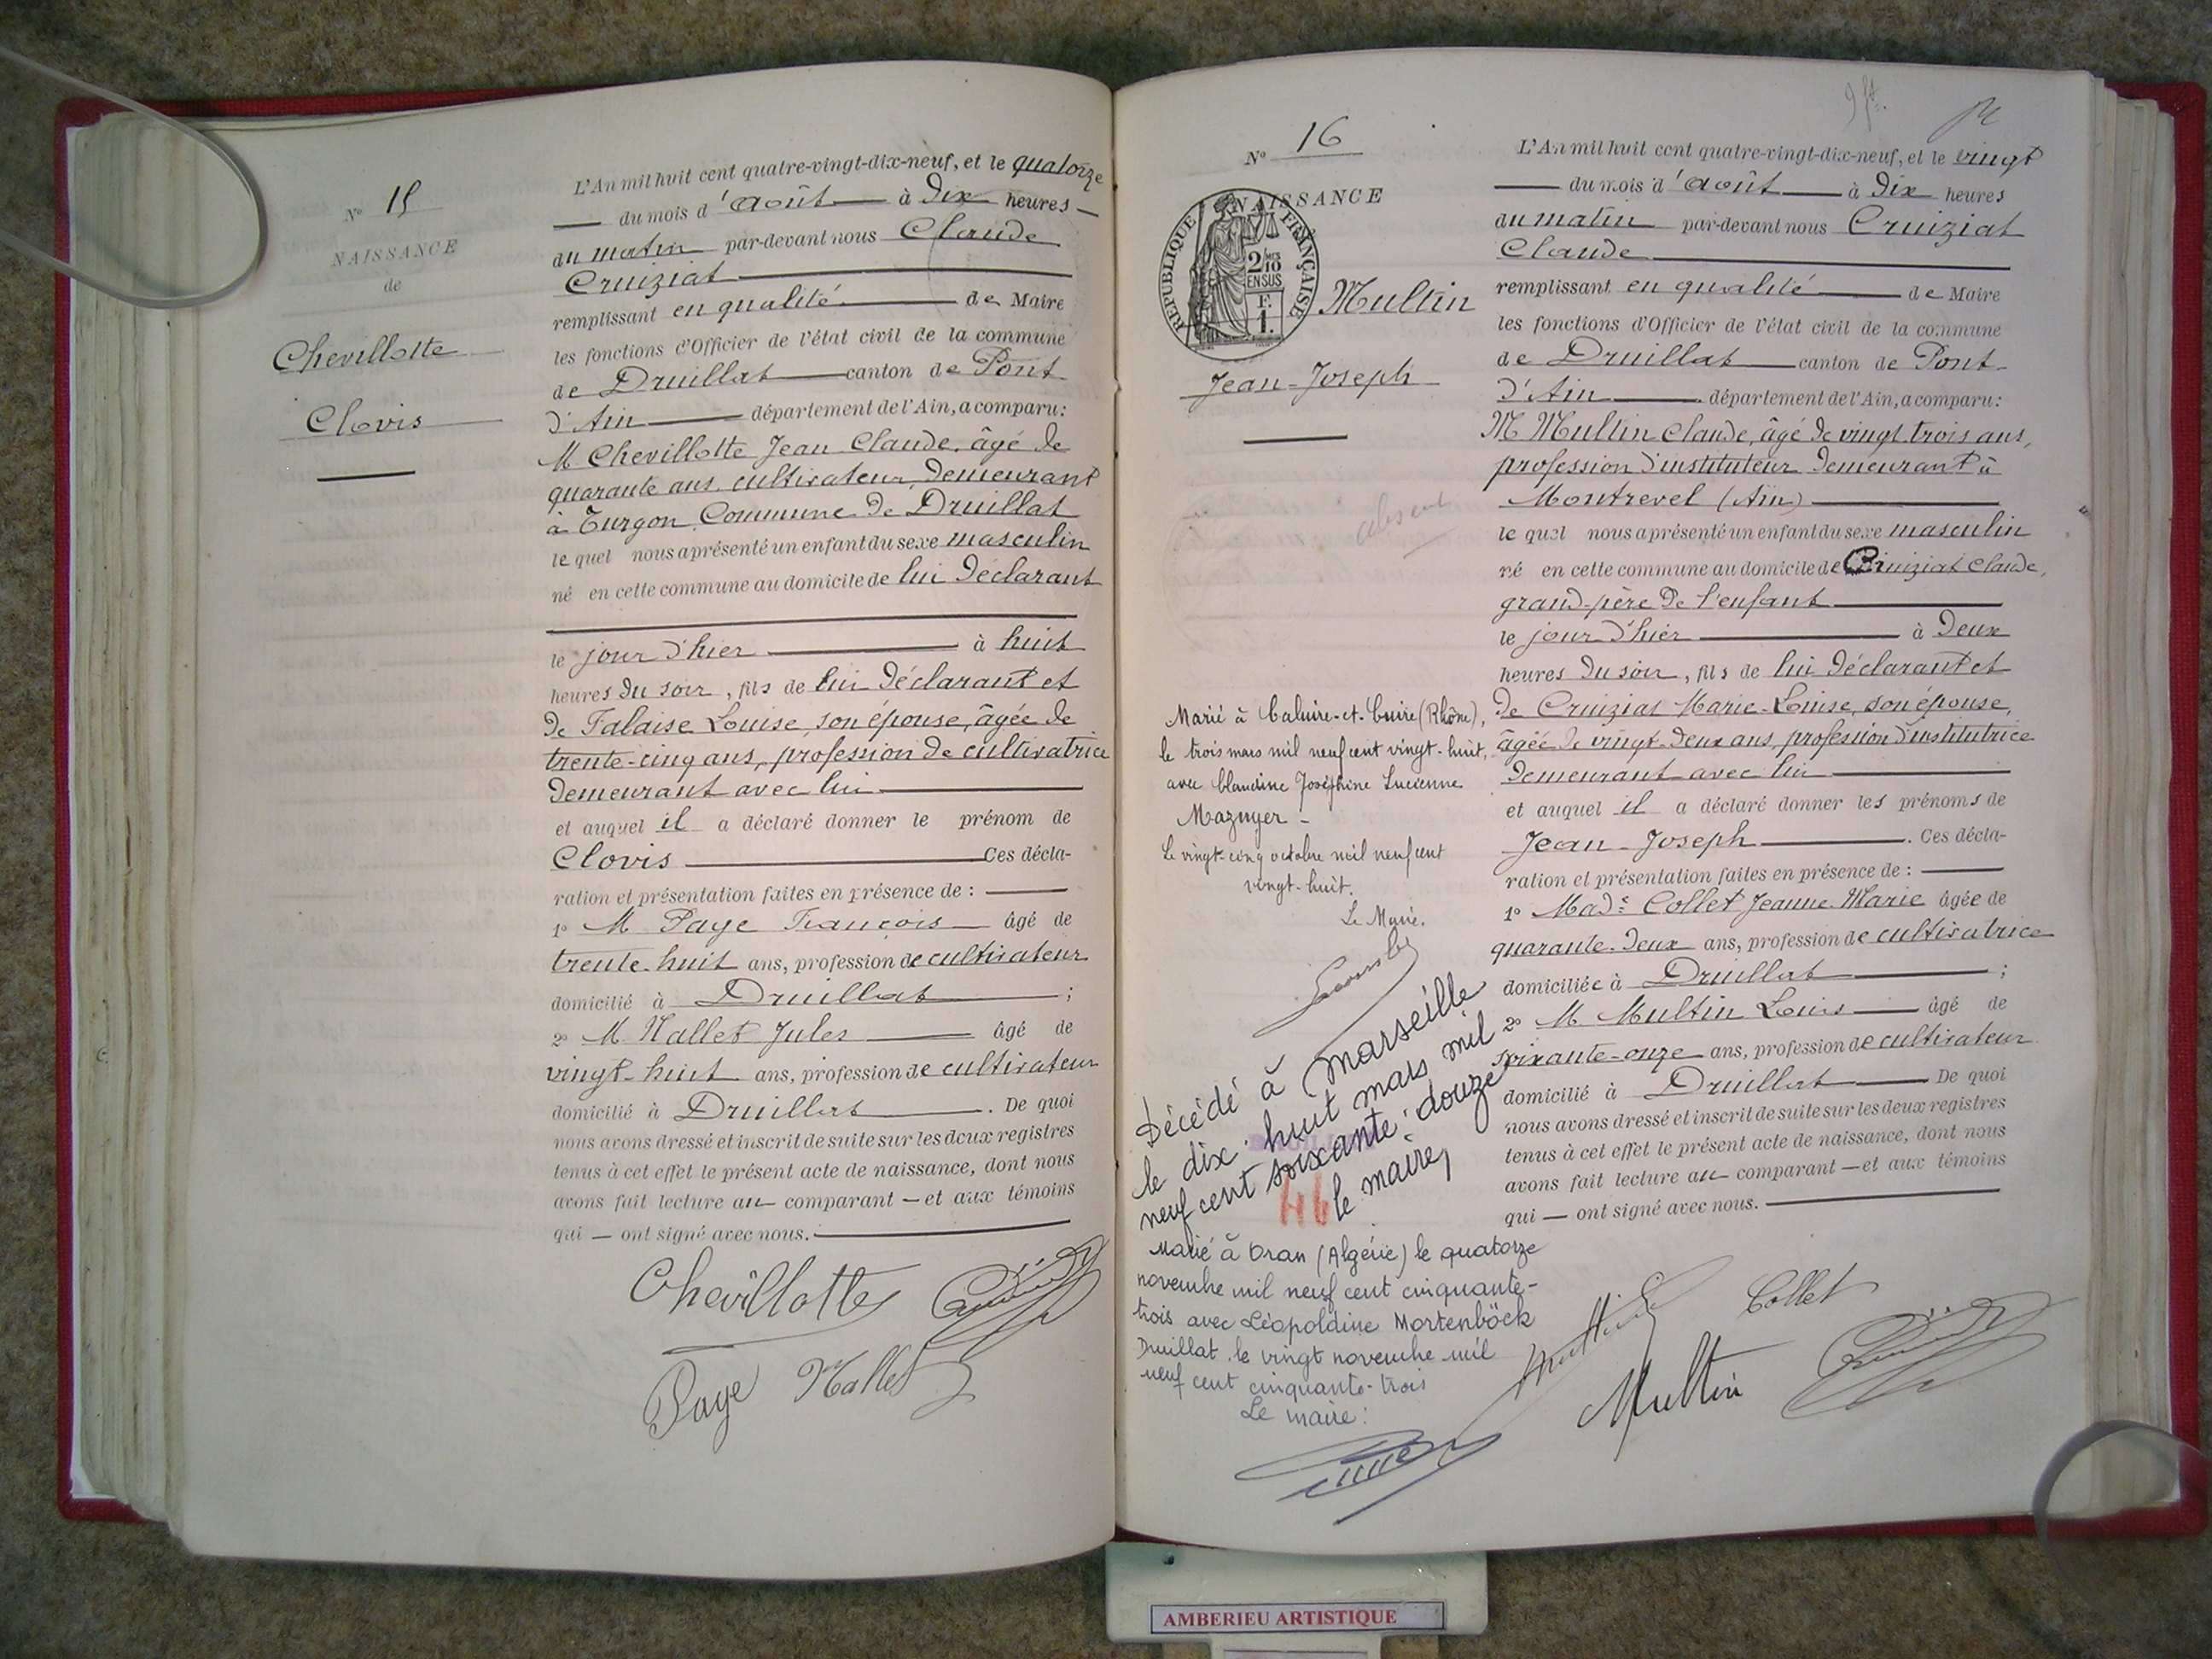 Nº 15
NAISSANCE
de
Chevillotte
Clovis
L'An mil huit cent quatre-vingt-dix-neuf, et le quatorze
du mois d'août à Dix heures
du matin par-devant nous Claude
Cruiziat
remplissant en qualité de Maire
les fonctions d'Officier de l'état civil de la commune
de Druillat canton de Pont
d'Ain département de l'Ain, a comparu:
M Chevillotte Jean Claude, âgé de
quarante ans, cultivateur, demeurant
à Turgon Commune de Druillat
le quel nous a présenté un enfant du sexe masculin
né en cette commune au domicile de lui déclarant
le jour d'hier à huit
heures du soir, fils de lui déclarant et
de Falaise Louise, son épouse, âgée de
trente-cinq ans, profession de cultivatrice
demeurant avec lui
et auquel il a déclaré donner le prénom de
Clovis Ces décla-
ration et présentation faites en présence de :
1º M Paye François âgé de
trente-huit ans, profession de cultivateur
domicilié à Druillat ;
2º M Nallet Jules âgé de
vingt-huit ans, profession de cultivateur
domicilié à Druillat . De quoi
nous avons dressé et inscrit de suite sur les deux registres
tenus à cet effet le présent acte de naissance, dont nous
avons fait lecture au comparant — et aux témoins
qui — ont signé avec nous.
Chevillotte
Paye Nallet
Nº 16
NAISSANCE
RÉPUBLIQUE FRANÇAISE
2/10 EN SUS
F. 1.
Multin
Jean-Joseph
absent
Marié à Caluire-et-Cuire (Rhône),
le trois mars mil neuf cent vingt-huit,
avec Claudine Joséphine Lucienne
Mazuyer -
Le vingt-cinq octobre mil neuf cent
vingt-huit.
Le Maire.
Décédé à Marseille
le dix-huit mars mil
neuf cent soixante-douze
le maire,
46
Marié à Oran (Algérie) le quatorze
novembre mil neuf cent cinquante-
trois avec Léopoldine Mortenböck
Druillat le vingt novembre mil
neuf cent cinquante-trois
Le maire :
L'An mil huit cent quatre-vingt-dix-neuf, et le vingt
du mois d'août à Dix heures
du matin par-devant nous Cruiziat
Claude
remplissant en qualité de Maire
les fonctions d'Officier de l'état civil de la commune
de Druillat canton de Pont-
d'Ain département de l'Ain, a comparu:
M Multin Claude, âgé de vingt-trois ans,
profession d'instituteur demeurant à
Montrevel (Ain)
le quel nous a présenté un enfant du sexe masculin
né en cette commune au domicile de Cruiziat Claude,
grand-père de l'enfant
le jour d'hier à deux
heures du soir, fils de lui déclarant et
de Cruiziat Marie-Louise, son épouse,
âgée de vingt-deux ans, profession d'institutrice
demeurant avec lui
et auquel il a déclaré donner les prénoms de
Jean-Joseph . Ces décla-
ration et présentation faites en présence de :
1º Made Collet Jeanne-Marie âgée de
quarante-deux ans, profession de cultivatrice
domiciliée à Druillat ;
2º M Multin Louis âgé de
soixante-onze ans, profession de cultivateur
domicilié à Druillat De quoi
nous avons dressé et inscrit de suite sur les deux registres
tenus à cet effet le présent acte de naissance, dont nous
avons fait lecture au comparant — et aux témoins
qui — ont signé avec nous.
Collet
Multin
AMBERIEU ARTISTIQUE